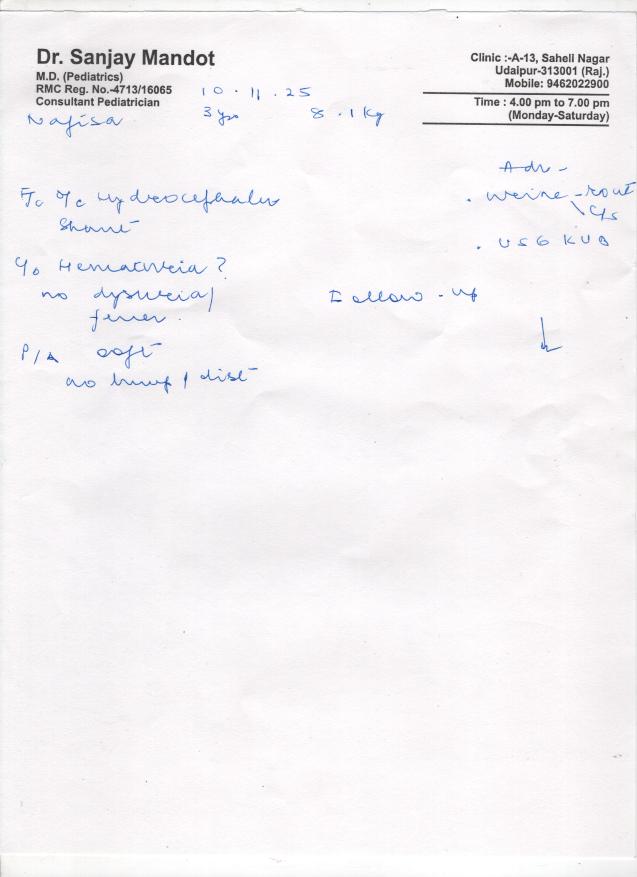 Dr. Sanjay Mandot
M.D. (Pediatrics)
RMC Reg. No.-4713/16065
Consultant Pediatrician
Clinic :-A-13, Saheli Nagar
Udaipur-313001 (Raj.)
Mobile: 9462022900
Time : 4.00 pm to 7.00 pm
(Monday-Saturday)
10.11.25
Nafisa 3 yrs 8.1 kg
Adv -
F/c o/c Hydrocephalus
Shunt
. Urine - rout
c/s
. USG KUB
c/o Hematuria ?
no dysuria /
fever.
Follow-up
P/A soft
no lump / dist